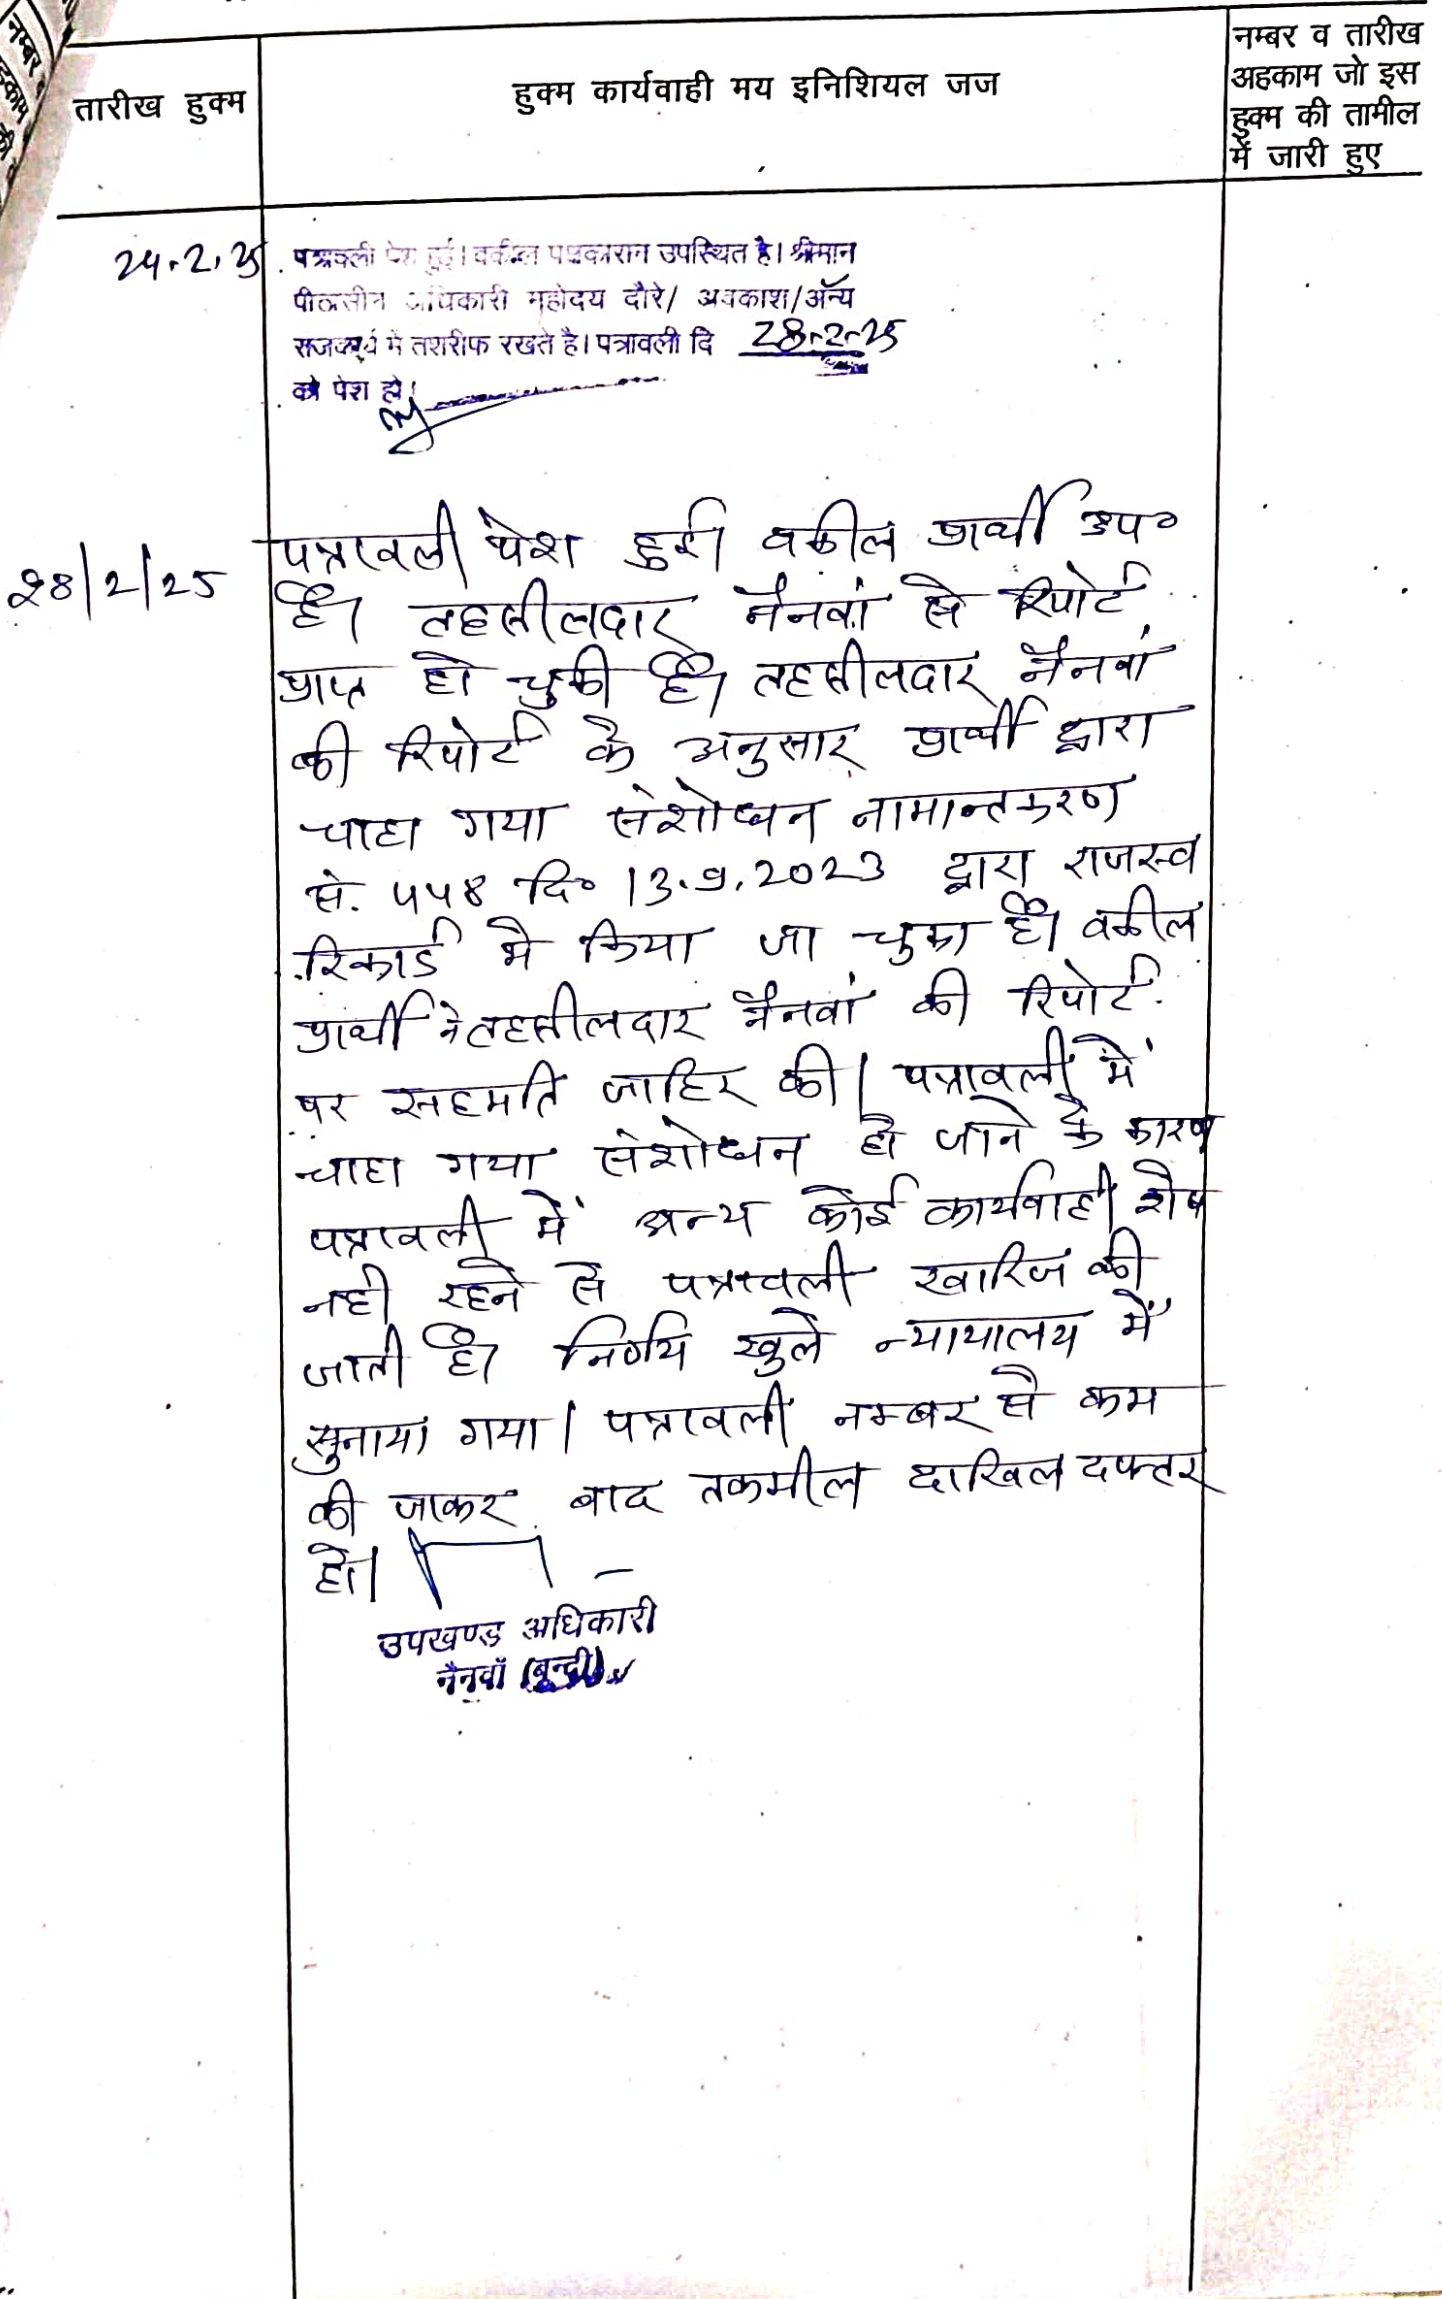 तारीख हुक्म
हुक्म कार्यवाही मय इनिशियल जज
नम्बर व तारीख
अहकाम जो इस
हुक्म की तामील
में जारी हुए
24.2.25
पत्रावली पेश हुई। वकील पक्षकारान उपस्थित है। श्रीमान
पीठासीन अधिकारी महोदय दौरे/ अवकाश/अन्य
राजकार्य में तशरीफ रखते है। पत्रावली दि 28-2-25
को पेश हो।
28/2/25
पत्रावली पेश हुई। वकील प्रार्थी उप०
है। तहसीलदार नैनवां से रिपोर्ट
प्राप्त हो चुकी है। तहसीलदार नैनवां
की रिपोर्ट के अनुसार प्रार्थी द्वारा
चाहा गया संशोधन नामान्तकरण
सं. 558 दि० 13.9.2023 द्वारा राजस्व
रिकार्ड मे किया जा चुका है। वकील
प्रार्थी ने तहसीलदार नैनवां की रिपोर्ट
पर सहमति जाहिर की। पत्रावली में
चाहा गया संशोधन हो जाने के कारण
पत्रावली में अन्य कोई कार्यवाही शेष
नही रहने से पत्रावली खारिज की
जाती है। निर्णय खुले न्यायालय में
सुनाया गया। पत्रावली नम्बर से कम
की जाकर बाद तकमील दाखिल दफ्तर
हो।
उपखण्ड अधिकारी
नैनवाँ (बून्दी)